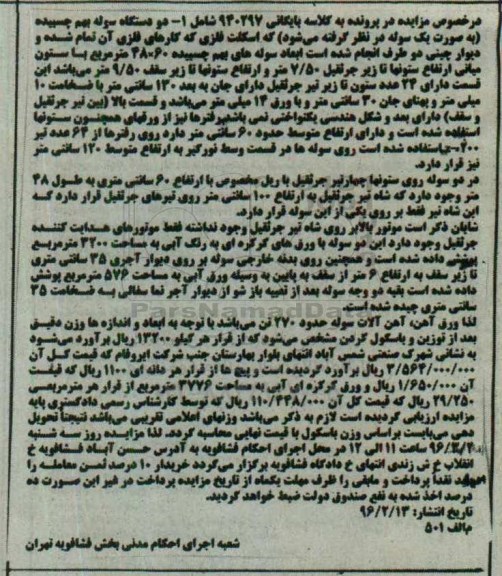 درخصوص مزایده در پرونده به کلاسه بایگانی ۹۴۰۲۹۷ شامل ۱- دو دستگاه سوله بهم چسبیده
(به صورت یک سوله در نظر گرفته می‌شود) که اسکلت فلزی که کارهای فلزی آن تمام شده و
دیوار چینی دو طرف انجام شده است ابعاد سوله های بهم چسبیده ۶۰×۴۸ مترمربع با ستون
میانی ارتفاع ستونها تا زیر جرثقیل ۷/۵۰ متر و ارتفاع ستونها تا زیر سقف ۹/۵۰ متر می‌باشد این
قسمت دارای ۲۴ عدد ستون تا زیر تیر جرثقیل دارای جان به بعد ۱۳۰ سانتی متر با ضخامت ۱۰
میلی متر و پهنای جان ۳۰ سانتی متر و با ورق ۱۴ میلی متر می‌باشد و قسمت بالا (بین تیر جرثقیل
و سقف) دارای بعد و شکل هندسی یکنواختی نمی باشد رفترها نیز از ورقهای همچون ستونها
استفاده شده است و دارای ارتفاع متوسط حدود ۶۰ سانتی متر دارد روی رفترها از ۶۴ عدد تیر
۲۰۰- استفاده شده است روی سوله ها در قسمت وسط نورگیر به ارتفاع متوسط ۱۲۰ سانتی متر
نیز قرار دارد.
در دو سوله روی ستونها چهار تیر جرثقیل با ریل مخصوص با ارتفاع ۶۰ سانتی متری به طول ۴۸
متر وجود دارد که شاه تیر جرثقیل به ارتفاع ۱۰۰ سانتی متر روی تیرهای جرثقیل قرار دارد که
این شاه تیر فقط بر روی یکی از این سوله قرار دارد.
شایان ذکر است موتور بالابر روی شاه تیر جرثقیل وجود نداشته فقط موتورهای هدایت کننده
جرثقیل وجود دارد این دو سوله با ورق های کرکره ای به رنگ آبی به مساحت ۳۲۰۰ مترمربع
پوشش داده شده است و همچنین روی بدنه خارجی سوله بر روی دیوار آجری ۳۵ سانتی متری
تا زیر سقف به ارتفاع ۶ متر از سقف به پایین به وسیله ورق آبی به مساحت ۵۷۶ مترمربع پوشش
داده شده است بقیه دو وجه سوله بعد از تعبیه باز شو از دیوار آجر نما سفالی به ضخامت ۳۵
سانتی متری چیده شده است.
لذا ورق آهن، آهن آلات سوله حدود ۲۷۰ تن می‌باشد با توجه به ابعاد و اندازه ها وزن دقیق
بعد از توزین و باسکول کردن مشخص می‌شود که از قرار هر کیلو ۱۳۲۰۰ ریال برآورد می‌شود
به نشانی شهرک صنعتی شمس آباد انتهای بلوار بهارستان جنب شرکت ایروفام که قیمت کل آن
۳/۵۶۴/۰۰۰/۰۰۰ ریال برآورد گردیده است و پیچ ها از قرار هر دانه ای ۱۱۰۰ ریال که قیمت
آن ۱/۶۵۰/۰۰۰ ریال و ورق کرکره ای آبی به مساحت ۳۷۷۶ مترمربع از قرار هر مترمربعی
۲۹/۲۵۰ ریال که قیمت کل آن ۱۱۰/۴۴۸/۰۰۰ ریال که توسط کارشناس رسمی دادگستری پایه
مزایده ارزیابی گردیده است لازم به ذکر می‌باشد وزنهای اعلامی تقریبی می‌باشد نتیجتاً تحویل
دهی می‌بایست براساس وزن باسکول با قیمت نهایی محاسبه گردد. لذا مزایده روز سه شنبه
ساعت ۱۱ الی ۱۲ در محل اجرای احکام فشافویه به آدرس حسن آباد فشافویه خ
انقلاب خ ش زندی انتهای خ دادگاه فشافویه برگزار می‌گردد خریدار ۱۰ درصد ثمن معامله را
نقداً پرداخت و مابقی را ظرف مهلت یکماه از تاریخ مزایده پرداخت در غیر این صورت ده
درصد اخذ شده به نفع صندوق دولت ضبط خواهد گردید.
تاریخ انتشار: ۹۶/۲/۱۳
م/الف ۵۰۱
شعبه اجرای احکام مدنی بخش فشافویه تهران
ParsNamadData